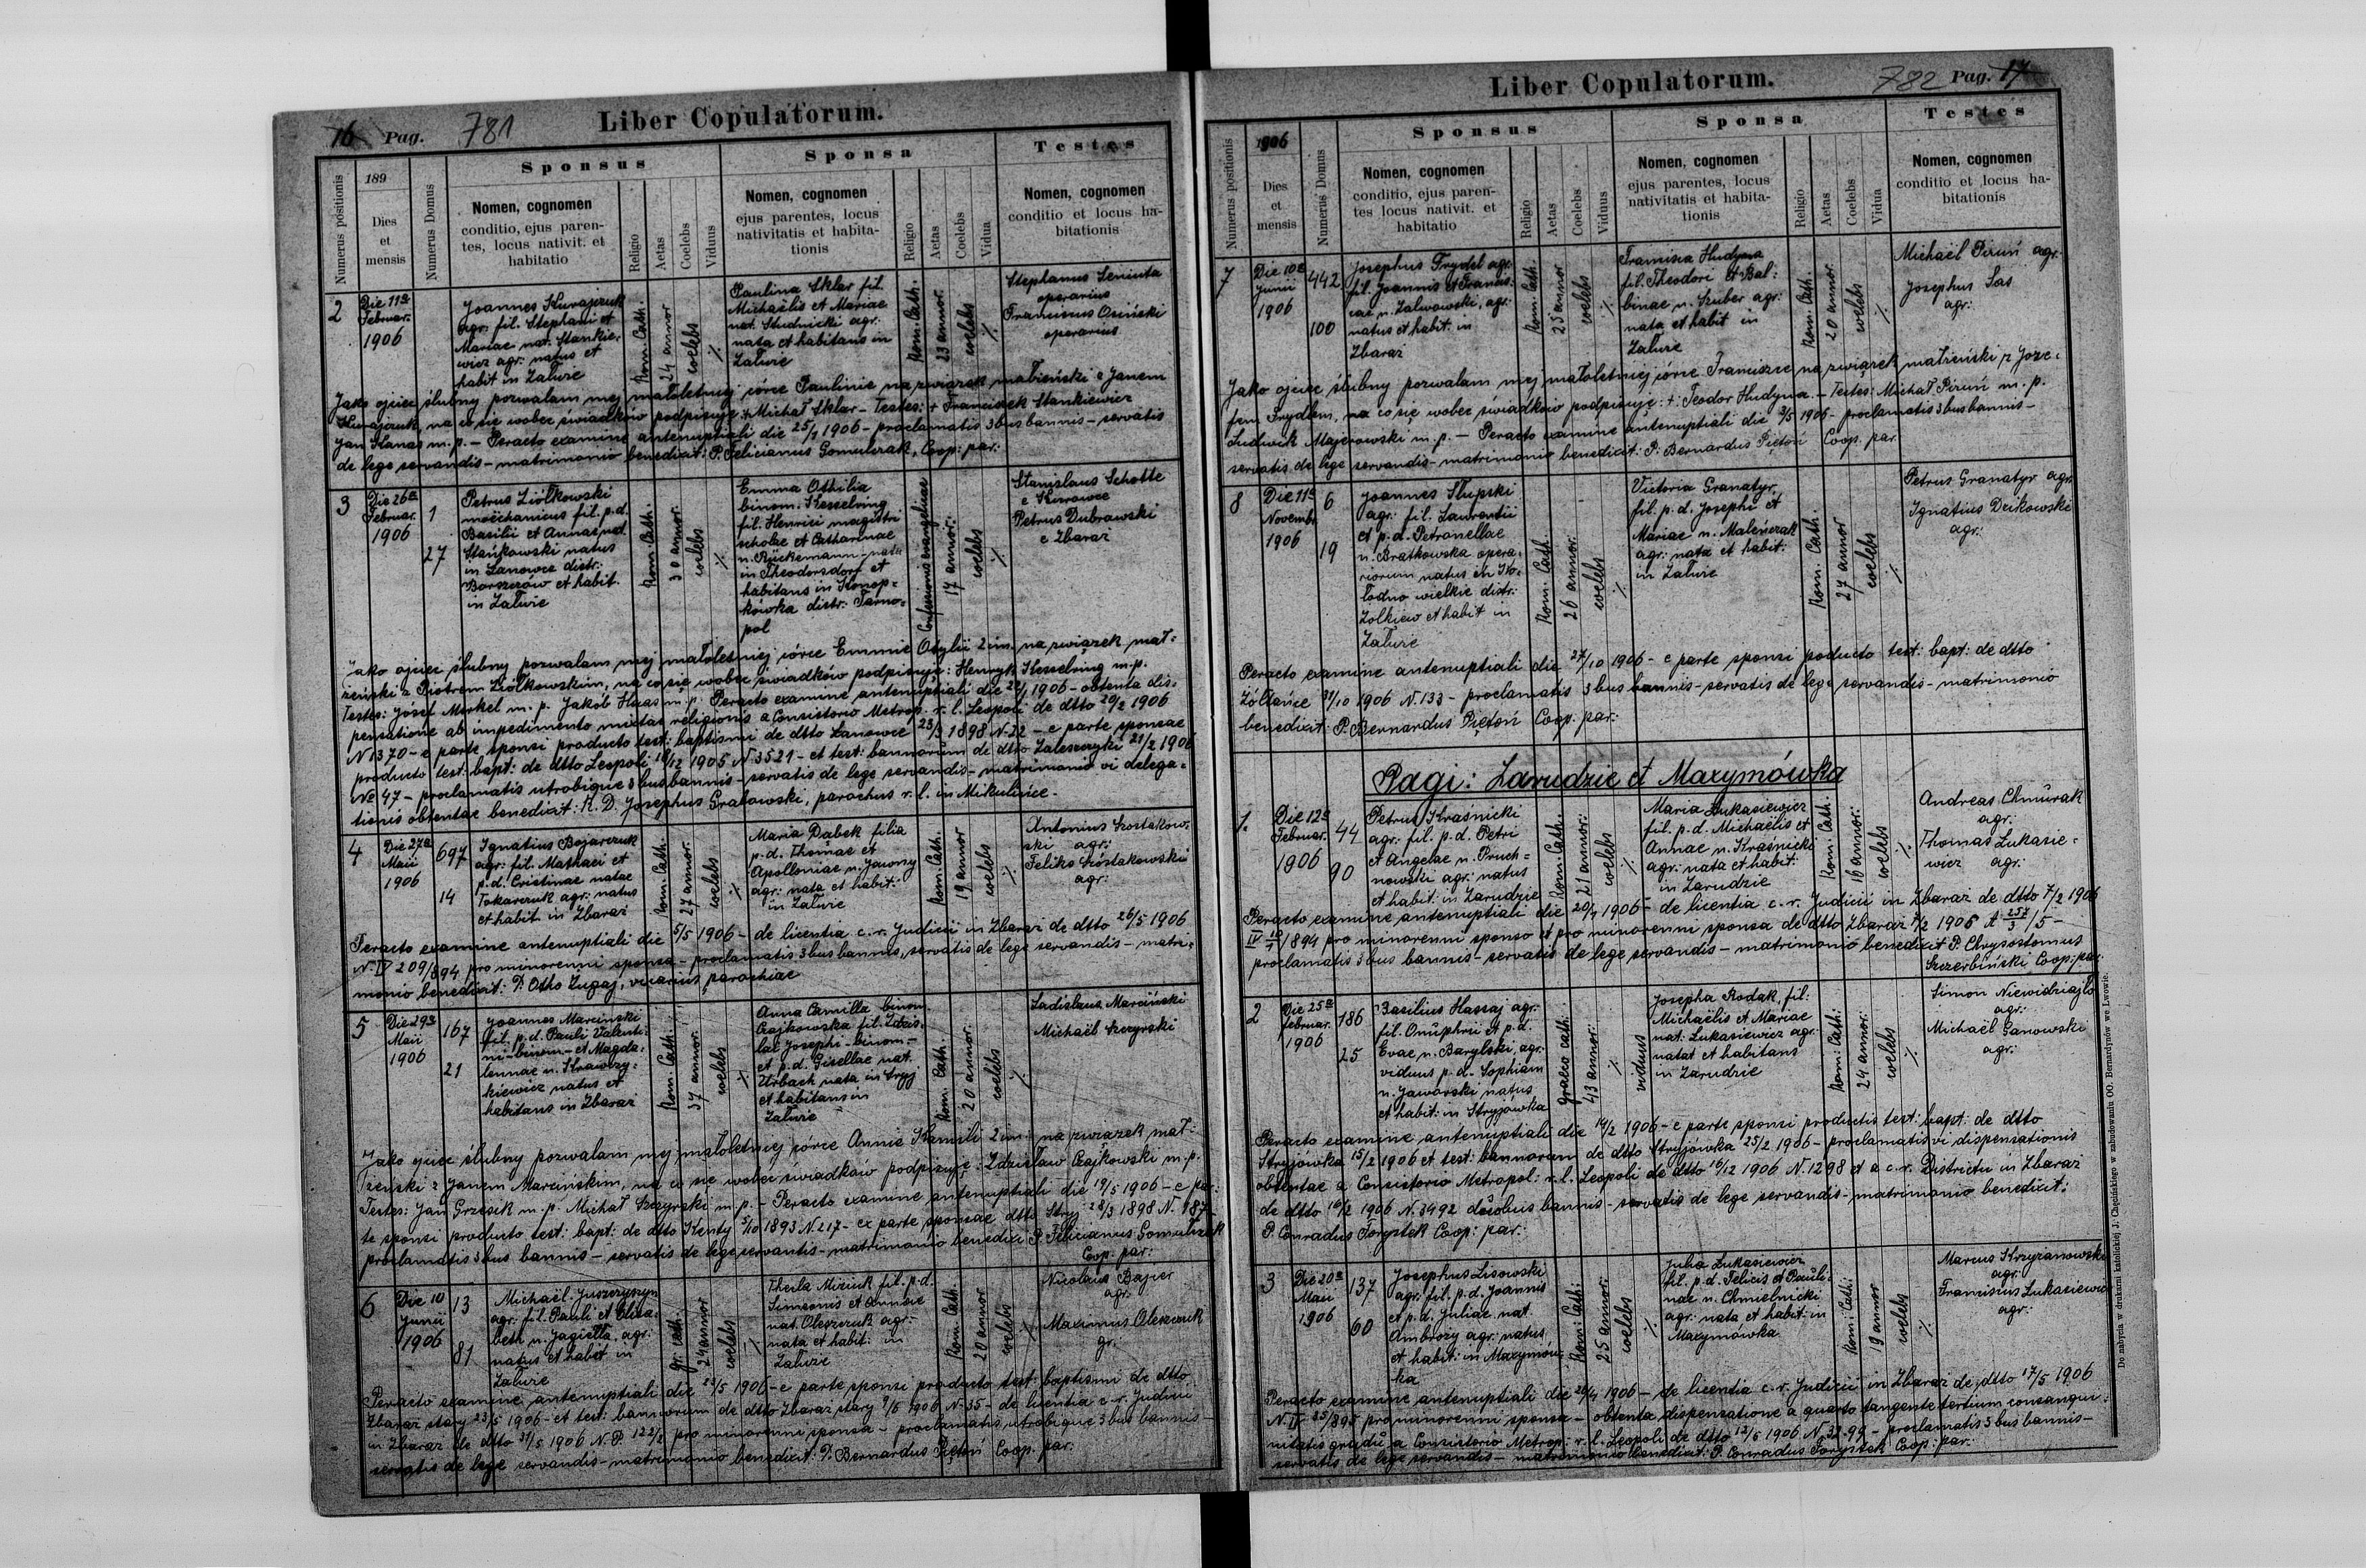 16 Pag. 781 Liber Copulatorum.
Numerus positionis
189
Dies
et
mensis
Numerus Domus
Sponsus
Nomen, cognomen
conditio, ejus paren-
tes, locus nativit. et
habitatio
Religio
Aetas
Coelebs
Viduus
Sponsa
Nomen, cognomen
ejus parentes, locus
nativitatis et habita-
tionis
Religio
Aetas
Coelebs
Vidua
Testes
Nomen, cognomen
conditio et locus ha-
bitationis
2
Die 11a
Februar.
1906
Joannes
agr: fil. Stephani et
Mariae nat. Stankie,
wicz agr: natus et
habit in Załuże
Rom. Cath.
24 annor
coelebs
Paulina Sklar fil
Michaëlis et Mariae
nat. Studnicki agr:
nata et habitans in
Załuże
Rom. Cath.
23 annor
coelebs
Stephanus Seniuta
operarius
Franciscus Osiński
operarius
Jako ojciec ślubny pozwalam mej małoletniej córce Paulinie na związek małżeński z Janem
na co się wobec świadków podpisuję: + Michał Sklar – Testes: + Franciszek Stankiewicz
Jan m. p. – Peracto examine antenuptiali die 25/1 1906 – proclamatis 3bus bannis – servatis
de lege servandis – matrimonio benedicit: P. Felicianus Gomulczak, Coop: par:
3
Die 26a
Februar.
1906
1
27
Petrus Ziółkowski
mechanicus fil. p.d.
Basilii et Annae nat.
Stańkowski natus
in Łanowce distr:
Borszczów et habit.
in Załuże
Rom. Cath.
30 annor.
coelebs
Emma Othilia
binom. Kesselring
fil. Henrici magistri
scholae et Catharinae
n. Röckemann – nata
in Theodorsdorf et
habitans in Konop=
kówka distr: Tarno=
pol
Confessionis evangelicae
17 annor.
coelebs
Stanislaus Schotte
e Kurowce
Petrus Dubrawski
e Zbaraż
Jako ojciec ślubny pozwalam mej małoletniej córce Emmie Otylii 2 im. na związek mał=
żeński z Piotrem Ziółkowskim, na co się wobec świadków podpisuję: Henryk Kesselring m.p.
Testes: Józef Merkel m. p. Jakób Haas m. p. Peracto examine antenuptiali die 1906 – obtenta dis=
pensatione ab impedimento mixtae religionis a Consistorio Metrop. r. l. Leopoli de dtto 20/2 1906
N 1370 – e parte sponsi producto test: baptismi de dtto Łanowce 23/3 1898 N. 22 – e parte sponsae
producto test: bapt: de dtto Leopoli 1905 N 3521 – et test: bannorum de dtto Zaleszczyki 21/2 1906
No 47 – proclamatis utrobique 3bus bannis – servatis de lege servandis – matrimonio vi delega=
tionis obtentae benedicit: R. D. Josephus Grabowski, parochus r. l. in Mikulińce –
4
Die 27a
Maii
1906
697
14
Ignatius Bojarczuk
agr: fil. Mathaei et
p.d. Cristinae natae
Tokarczuk agr: natus
et habit. in Zbaraż
Rom. Cath.
27 annor.
coelebs
Maria Dąbek filia
p.d. Thomae et
Apolloniae n. Jawny
agr: nata et habit:
in Załuże
Rom. Cath.
19 annor
coelebs
Antonius Szostakow,
ski agr:
Feliks Szostakowski
agr:
Peracto examine antenuptiali die 5/5 1906 – de licentia c.r. Judicii in Zbaraż de dtto 26/5 1906
N. IV 209/894 pro minorenni sponsa – proclamatis 3bus bannis, servatis de lege servandis – matri=
monio benedicit: P. Otho Zugaj, vicarius parochiae
5
Die 29a
Maii
1906
167
21
Joannes Marciński
fil. p.d. Pauli Valenti:
ni – binom – et Magda:
lennae n. Krawczy:
kiewicz natus et
habitans in Zbaraż
Rom. Cath.
37 annor.
coelebs
Anna Camilla binom
Czajkowska fil. Zdzis:
lai Josephi – binom –
et p.d. Gisellae nat.
Urbach nata in Stryj
et habitans in
Załuże
Rom. Cath.
20 annor.
coelebs
Ladislaus Marciński
Michaël Szczyrski
Jako ojciec ślubny pozwalam mej małoletniej córce Annie Kamili 2 im. na związek mał:
żeński z Janem Marcińskim, na co się wobec świadków podpisuję: Zdzisław Czajkowski m. p.
Testes: Jan Grzesik m. p. Michał Szczyrski m. p. – Peracto examine antenuptiali die 19/5 1906 – e par:
te sponsi producto test: bapt: de dtto Kenty 5/10 1893 N. 217 – ex parte sponsae dtto Stryj 28/3 1898 N. 187 –
proclamatis 3bus bannis – servatis de lege servantis – matrimonio benedicit P. Felicianus Gomulczak
Coop: par:
6
Die 10
Junii
1906
13
81
Michaël Juszczyszyn
agr: fil. Pauli et Elisa:
beth n. Jagiełła, agr:
natus et habit in
Załuże
gr: cath:
24 annor
coelebs
Thecla Miziuk fil. p.d.
Simeonis et Annae
nat. Oleszczuk agr:
nata et habit: in
Załuże
Rom. Cath.
20 annor
coelebs
Nicolaus Bajier
agr:
Maximus Oleszczuk
gr:
Peracto examine antenuptiali die 23/5 1906 – e parte sponsi producto test: baptismi de dtto
Zbaraż stary 23/5 1906 – et test: bannorum de dtto Zbaraż stary 1906 N. 35 – de licentia c. r. Judicii
in Zbaraż de dtto 31/5 1906 N. P. 122/2 pro minorenni sponsa – proclamatis utrobique 3 bus bannis –
servatis de lege servandis – matrimonio benedicit: P. Bernardus Piętoń Coop. par.
Liber Copulatorum. 782 Pag. 17
Numerus positionis
1906
Dies
et
mensis
Numerus Domus
Sponsus
Nomen, cognomen
conditio, ejus paren-
tes locus nativit. et
habitatio
Religio
Aetas
Coelebs
Viduus
Sponsa
Nomen, cognomen
ejus parentes, locus
nativitatis et habita-
tionis
Religio
Aetas
Coelebs
Vidua
Testes
Nomen, cognomen
conditio et locus ha-
bitationis
7
Die 10a
Junii
1906
442
100
Josephus Frydel agr:
fil. Joannis et Francis:
cae n. Zalwowski, agr:
natus et habit. in
Zbaraż
Rom. Cath.
25 annor
coelebs
Francisca Hudyna
fil. Theodori et Bal:
binae n. Szuber agr:
nata et habit in
Załuże
Rom. Cath.
20 annor.
coelebs
Michaël Piruń agr:
Josephus Las
agr:
Jako ojciec ślubny pozwalam mej małoletniej córce Franciszce na związek małżeński z Józe:
fem Frydlem, na co się wobec świadków podpisuję: + Teodor Hudyna. – Testes: Michał Piruń m. p.
Ludwik Majerowski m. p. – Peracto examine antenuptiali die 3/5 1906 – proclamatis 3 bus bannis –
servatis de lege servandis – matrimonio benedicit: P. Bernardus Piętoń Coop. par.
8
Die 11a
Novembr.
1906
6
19
Joannes Słupski
agr: fil. Laurentii
et p.d. Petronellae
n. Bratkowska opera:
riorum natus in Ko:
łodno wielkie distr:
Zolkiew et habit in
Załuże
Rom. Cath.
26 annor.
coelebs
Victoria Granatyr,
fil. p.d. Josephi et
Mariae n. Maleńczak
agr: nata et habit:
in Załuże
Rom. Cath.
27 annor
coelebs
Petrus Granatyr agr:
Ignatius Dzikowski
agr:
Peracto examine antenuptiali die 27/10 1906 – e parte sponsi poducto test: bapt: de dtto
Żółtańce 31/10 1906 N. 133 – proclamatis 3 bus bannis – servatis de lege servandis – matrimonio
benedicit: P. Bernardus Piętoń Coop. par:
Pagi: Zarudzie et Maxymówka
1.
Die 12a
Februar.
1906
44
90
Petrus Kraśnicki
agr: fil. p.d. Petri
et Angelae n. Pruch=
nowski agr: natus
et habit: in Zarudzie
Rom. Cath.
21 annor:
coelebs
Maria Łukasiewicz
fil. p.d. Michaëlis et
Annae n. Kraśnicki
agr: nata et habit:
in Zarudzie
Rom. Cath.
16 annor:
coelebs
Andreas Chmurak
agr:
Thomas Lukasie=
wicz agr:
Peracto examine antenuptiali die 20/1 1906 – de licentia c. r. Judicii in Zbaraż de dtto 7/2 1906
IV 10/1/894 pro minorenni sponso et pro minorenni sponsa de dtto Zbaraż 1906 A 257/3 / 5 –
proclamatis 3 bus bannis – servatis de lege servandis – matrimonio benedicit P. Chrysostomus
Szczerbiński Coop: par:
2
Die 25a
februar.
1906
186
25
Basilius Hassaj agr:
fil. Onuphrii et p.d.
Evae n. Barylski agr:
viduus p.d. Sophiam
n. Jaworski natus
et habit: in Stryjówka
graeco cath:
43 annor:
viduus
Josepha Rodak, fil:
Michaëlis et Mariae
nat. Lukasiewicz agr:
natat et habitans
in Zarudzie
Rom: Cath:
24 annor:
coelebs
Simon Niewidziajło
agr:
Michaël Ganowski
agr:
Peracto examine antenuptiali die 14/2 1906 – e parte sponsi productis test: bapt: de dtto
Stryjówka 15/2 1906 et test: bannorum de dtto Stryjówka 25/2 1906 – proclamatis vi dispensationis
obtentae a Consistorio Metropol: r. l. Leopoli de dtto 1906 N. 1298 et a c. r. Districtu in Zbaraż
de dtto 1906 N. 3492 duobus bannis – servatis de lege servandis – matrimonio benedicit:
P. Conradus Forystek Coop: par:
3
Die 20a
Maii
1906
137
60
Josephus Lisowski
agr: fil. p.d. Joannis
et p.d. Juliae nat.
Ambroży agr: natus
et habit: in Maxymów:
ka
Rom: Cath:
25 annor:
coelebs
Julia Lukasiewicz
fil. p.d. Felicis et Pauli:
nae n. Chmielnicki
agr: nata et habit: in
Maxymówka
Rom: Cath:
19 annor
coelebs
Marcus Krzyżanowski
agr:
Franciscus Lukasiewicz
agr:
Peracto examine antenuptiali die 1906 – de licentia c. r. Judicii in Zbaraż de dtto 17/5 1906
N. IV 25/895 pro minorenni sponsa – obtenta dispensatione a quarto tangente tertium consangui:
nitatis gradu a Consistorio Metrop: r. l. Leopoli de dtto 12/5 1906 N. 32.99 – proclamatis 3 bus bannis –
servatis de lege servandis – matrimonio benedicit: P. Conradus Forystek Coop: par:
Do nabycia w drukarni katolickiej J. Chęcińskiego w zabudowaniu OO. Bernardynów we Lwowie.